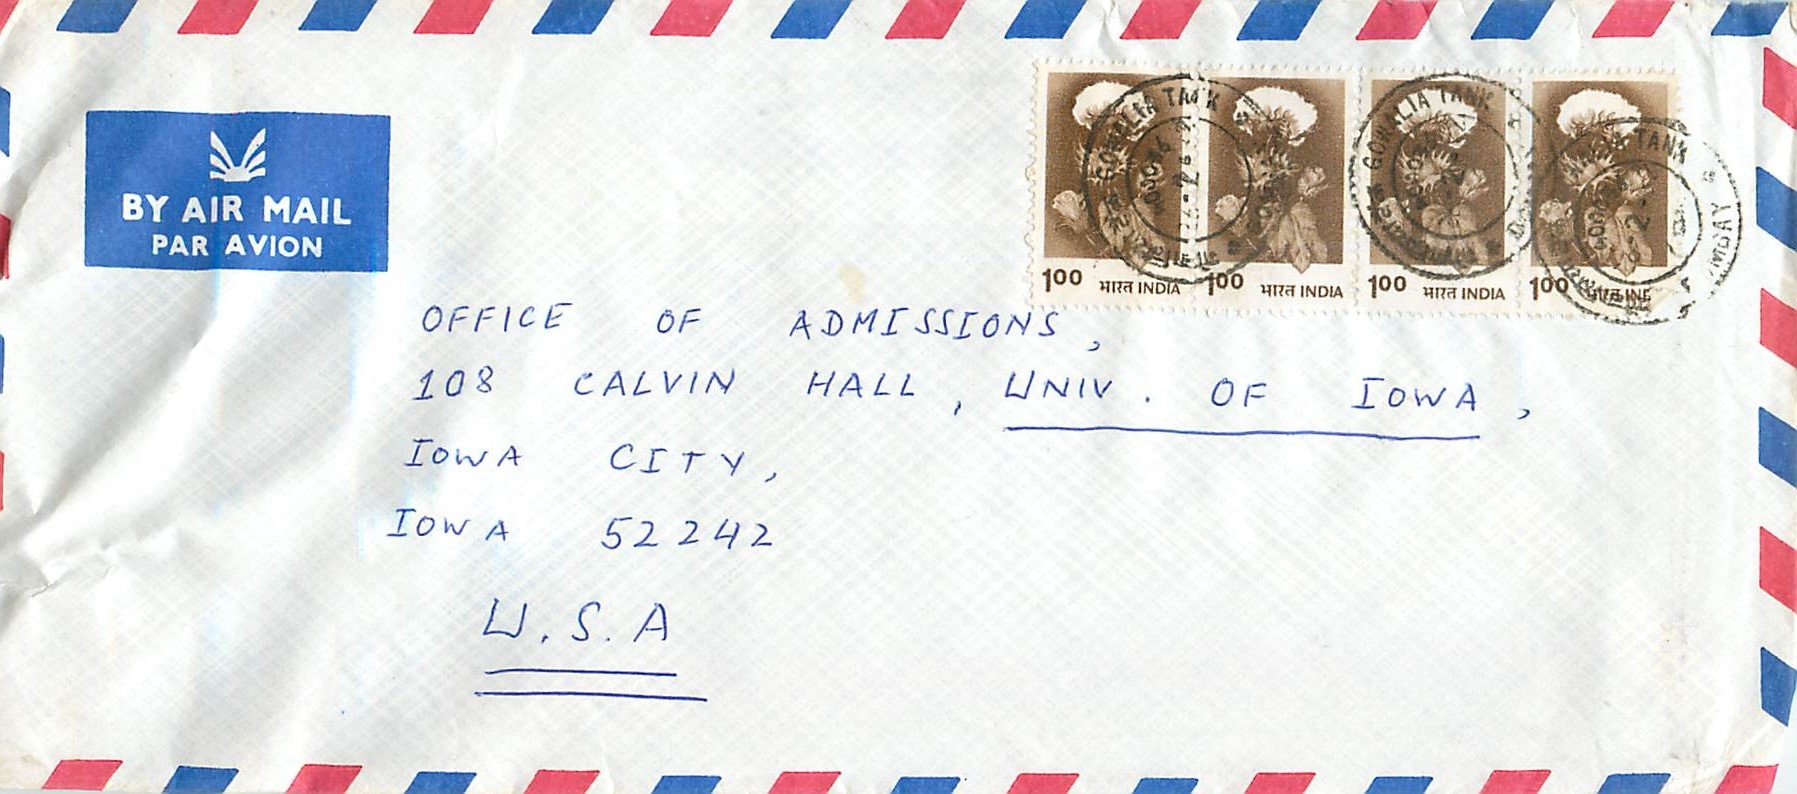 BY AIR MAIL
PAR AVION
1.00 भारत INDIA
1.00 भारत INDIA
1.00 भारत INDIA
1.00 भारत
GOWALIA TANK
GOWALIA TANK
TANK
OFFICE OF ADMISSIONS,
108 CALVIN HALL, UNIV. OF IOWA,
IOWA CITY,
IOWA 52242
U.S.A